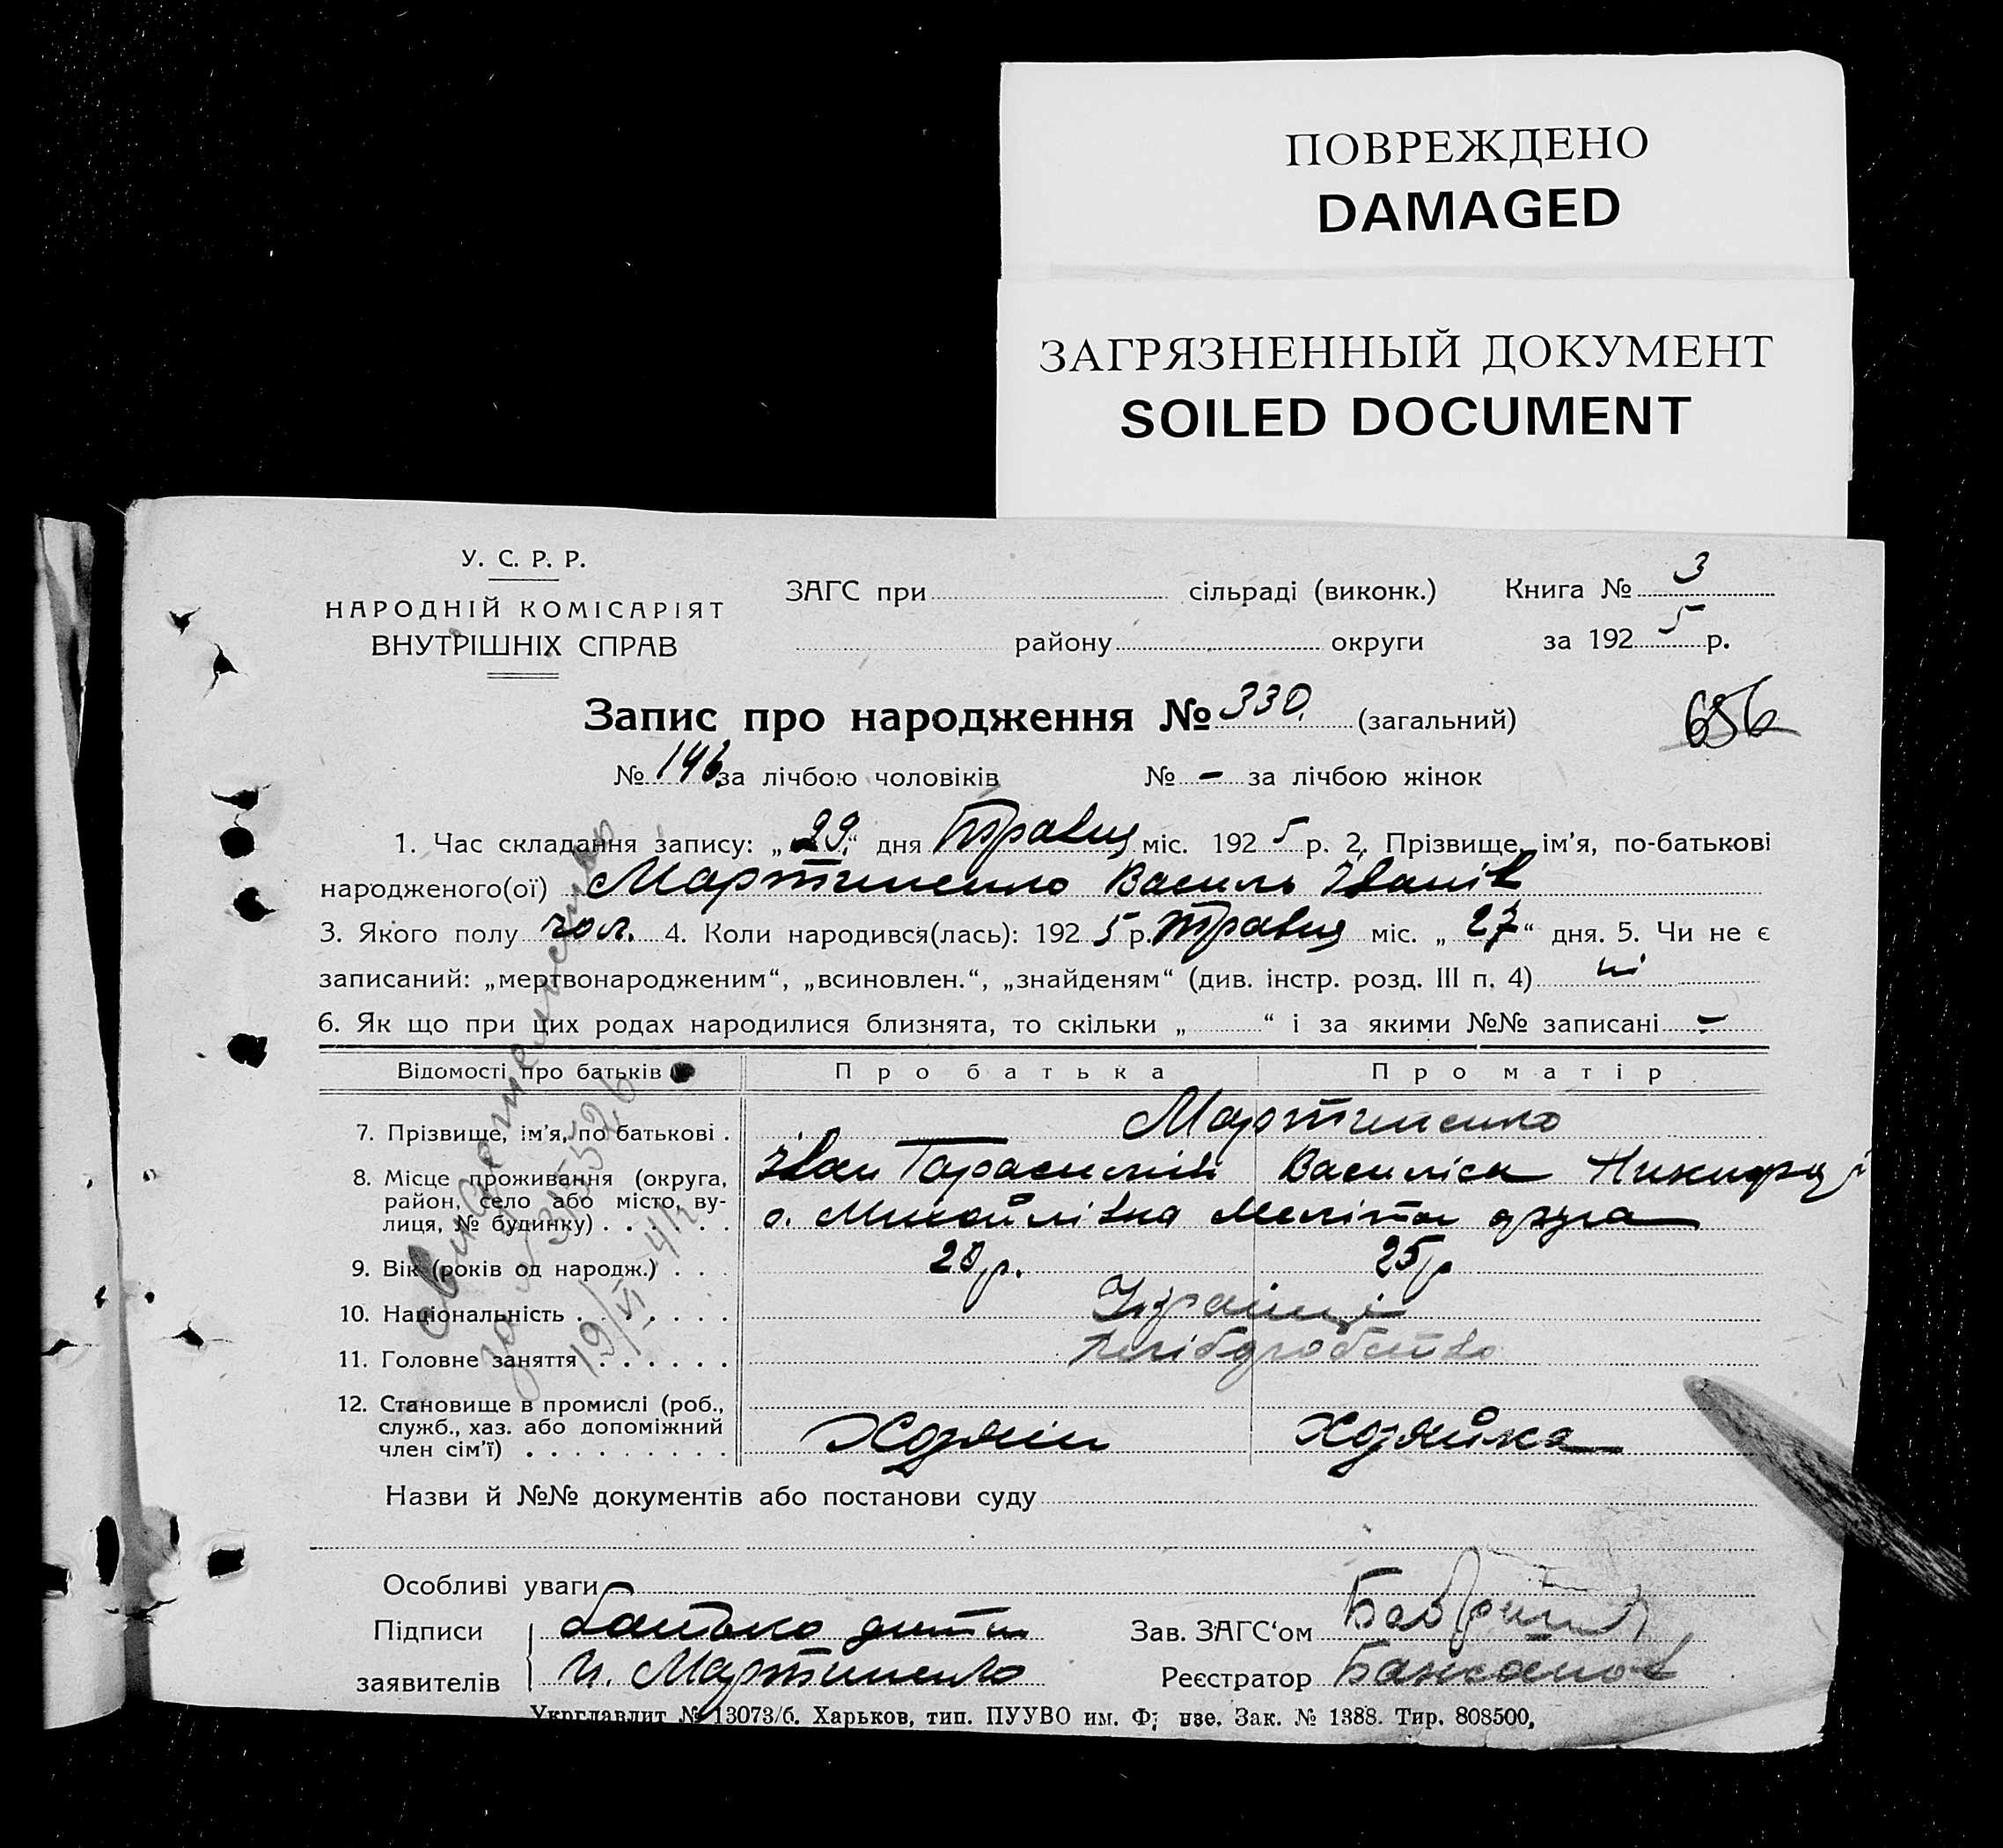 ПОВРЕЖДЕНО
DAMAGED
ЗАГРЯЗНЕННЫЙ ДОКУМЕНТ
SOILED DOCUMENT
У. С. Р. Р.
НАРОДНІЙ КОМІСАРІЯТ
ВНУТРІШНІХ СПРАВ
ЗАГС при сільраді (виконк.) Книга № 3
району округи за 1925 р.
Запис про народження № 330. (загальний)
656
№ 146 за лічбою чоловіків № - за лічбою жінок
1. Час складання запису: „29“ дня травця міс. 1925 р. 2. Прізвище, ім'я, по-батькові
народженого(ої) Мартиненко Василь Іванів
3. Якого полу чол. 4. Коли народився(лась): 1925 р. травця міс. „27“ дня. 5. Чи не є
записаний: „мертвонародженим“, „всиновлен.“, „знайденям“ (див. інстр. розд. III п. 4) ні
6. Як що при цих родах народилися близнята, то скільки „ “ і за якими №№ записані -
Відомості про батьків Про батька Про матір
7. Прізвище, ім'я, по батькові . Мартиненко
Іван Василиса
8. Місце проживання (округа, район, село або місто, вулиця, № будинку) . . . . . . с. Михайлівка друга
9. Вік (років од народж.) . . . 28 р. 25 р
10. Національність . . . . . . Українці
11. Головне заняття . . . . . . хліборобство
12. Становище в промислі (роб., служб., хаз. або допоміжний член сім'ї) . . . . . . . . . Хозяїн Хозяйка
Назви й №№ документів або постанови суду
Особливі уваги
Підписи батько дити Зав. ЗАГС'ом
заявителів И. Мартиненко Реєстратор
Укрглавлит № 13073/б. Харьков, тип. ПУУВО им. Ф зе. Зак. № 1388. Тир. 808500,